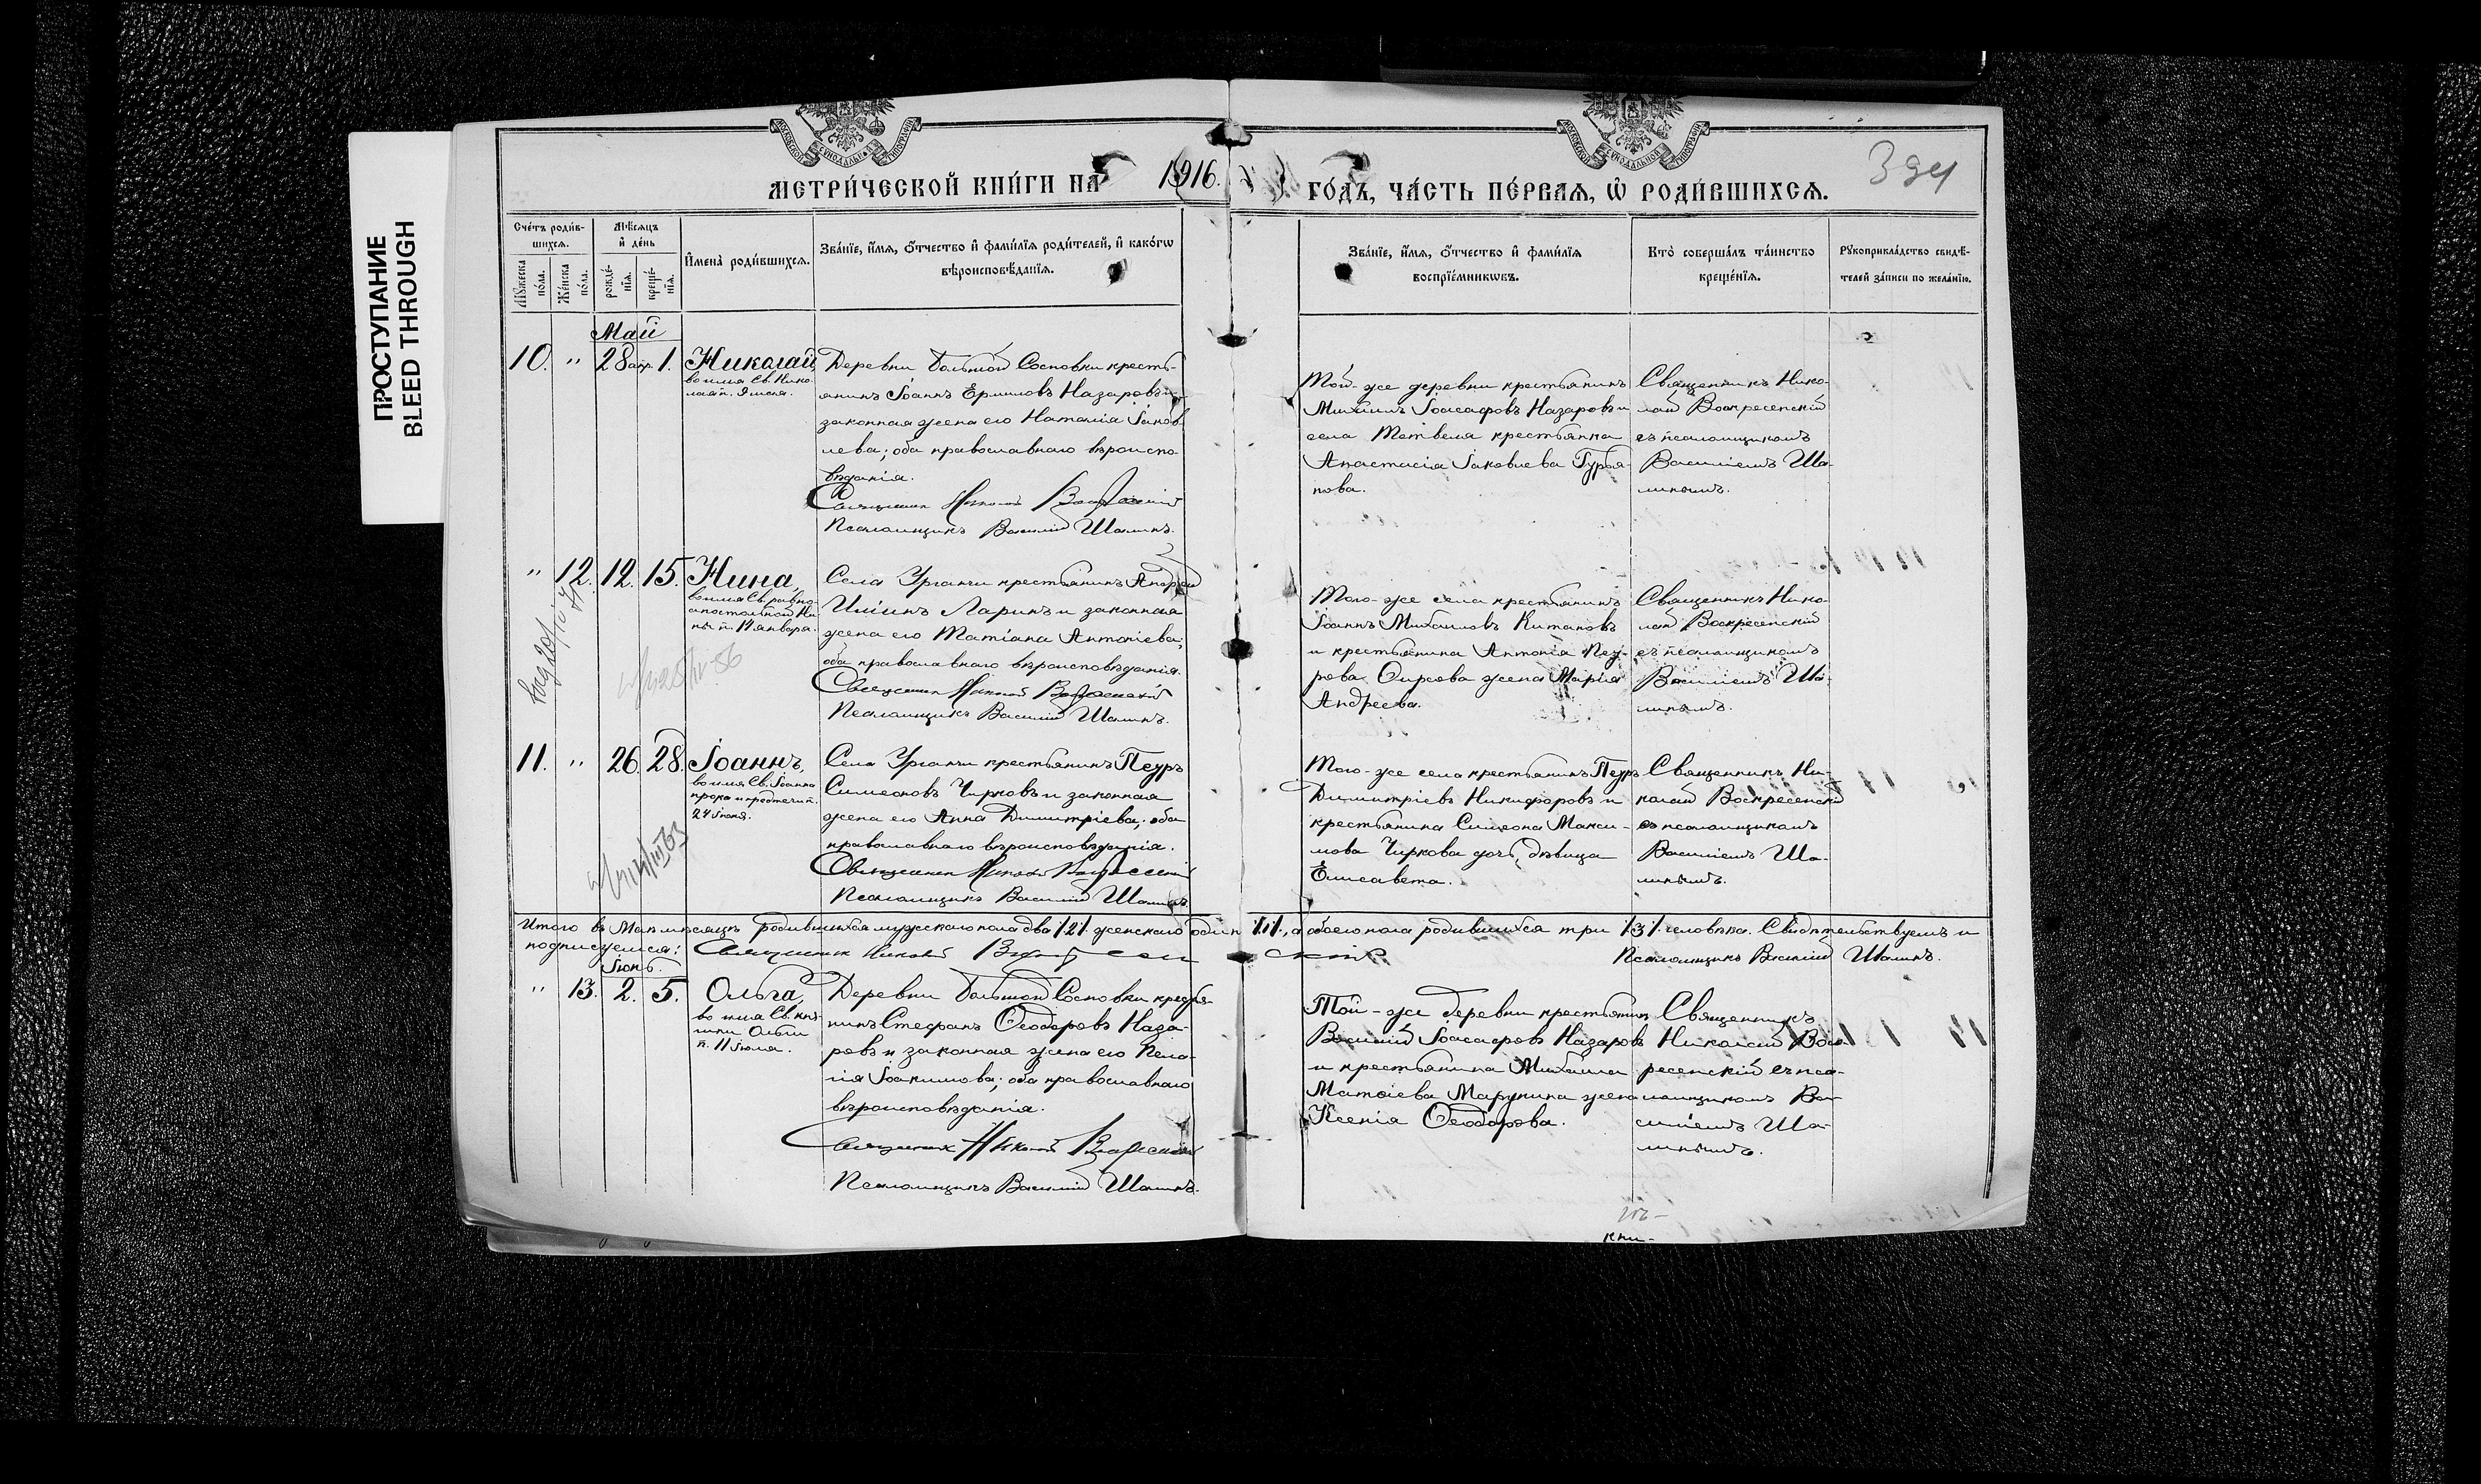 ПРОСТУПАНИЕ
BLEED THROUGH
МОСКОВСКОЙ СѴНОДАЛЬНОЙ ТИПОГРАФІИ
МОСКОВСКОЙ СѴНОДАЛЬНОЙ ТИПОГРАФІИ
МЕТРИ́ЧЕСКОЙ КНИ́ГИ НА 1916. ГО́ДЪ, ЧА́СТЬ ПЕ́РВАЯ, Ѡ҆ РОДИ́ВШИХСЯ.
394
Сче́тъ роди́в-
шихся.
Мѣ́сяцъ
и҆ де́нь
Мꙋ́жеска по́ла.
Же́нска по́ла.
рожде́-
нїя.
креще́-
нїя.
И҆мена̀ роди́вшихся.
Зва́нїе, и҆́мя, ѻ҆́тчество и҆ фами́лїя роди́телей, и҆ како́гѡ
вѣроисповѣ́данїя.
Зва́нїе, и҆́мя, ѻ҆́тчество и҆ фами́лїя
воспрїе́мникѡвъ.
Кто̀ соверша́лъ та́инство
креще́нїя.
Рꙋкоприкла́дство свидѣ́-
телей за́писи по жела́нїю.
Май
10. " 28 апр. 1. Николай,
во имя Св. Нико-
лая п. 9 мая.
Деревни Большой Сосновки кресть-
янинъ Іоаннъ Ермиловъ Назаровъ и
законная жена его Наталія Іаков-
лева; оба православнаго вѣроиспо-
вѣданія.
Священникъ Николай Воскресенскій
Псаломщикъ Василій Шалинъ.
Той-же деревни крестьянинъ
Михаилъ Іоасафовъ Назаровъ и
села крестьянка
Анастасія Іаковлева Гурья-
нова.
Священникъ Нико-
лай Воскресенскій
съ псаломщикомъ
Василіемъ Ша-
линымъ.
" 12. 12. 15. Нина,
во имя Св. равно-
апостольной Ни-
ны п. 14 января.
Села Урганчи крестьянинъ Андрей
Иліинъ Ларинъ и законная
жена его Татіана Антоніева;
оба православнаго вѣроисповѣданія.
Священникъ Николай Воскресенскій
Псаломщикъ Василій Шалинъ.
Того-же села крестьянинъ
Іоаннъ Михаиловъ Китановъ
и крестьянина Антонія Пет-
рова жена Марія
Андреева.
Священникъ Нико-
лай Воскресенскій
съ псаломщикомъ
Василіемъ Ша-
линымъ.
11. " 26. 28. Іоаннъ,
во имя Св. Іоанна
прока и предтечи п.
24 Іюня.
Села Урганчи крестьянинъ Петръ
Симеоновъ Чирковъ и законная
жена его Анна Димитріева; оба
православнаго вѣроисповѣданія.
Священникъ Николай Воскресенскій
Псаломщикъ Василій Шалинъ.
Того-же села крестьянинъ Петръ
Димитріевъ Никифоровъ и
крестьянина Симеона Макси-
мова Чиркова дочь, дѣвица
Елисавета.
Священникъ Ни-
колай Воскресенскій
съ псаломщикомъ
Василіемъ Ша-
линымъ.
Итого въ Маѣ мѣсяцѣ родившихся мужскаго пола два /2/. женскаго одинъ /1/., а обоего пола родившихся три /3/. человѣка. Свидѣтельствуемъ и
подписуемся: Священникъ Николай Воскресенскій Псаломщикъ Василій Шалинъ.
Іюнь.
" 13. 2. 5. Ольга,
во имя Св. кня-
гини Ольги
п. 11 Іюля.
Деревни Большой Сосновки крестья-
нинъ Стефанъ Ѳеодоровъ Наза-
ровъ и законная жена его Пела-
гія Іоакимова; оба православнаго
вѣроисповѣданія.
Священникъ Николай Воскресенскій
Псаломщикъ Василій Шалинъ.
Той-же деревни крестьянинъ
Василій Іоасафовъ Назаровъ
и крестьянина Михаила
Матѳіева Марунина жена
Ксенія Ѳеодорова.
Священникъ
Николай Воск-
ресенскій съ пса-
ломщикомъ Ва-
силіемъ Ша-
линымъ.
кни-